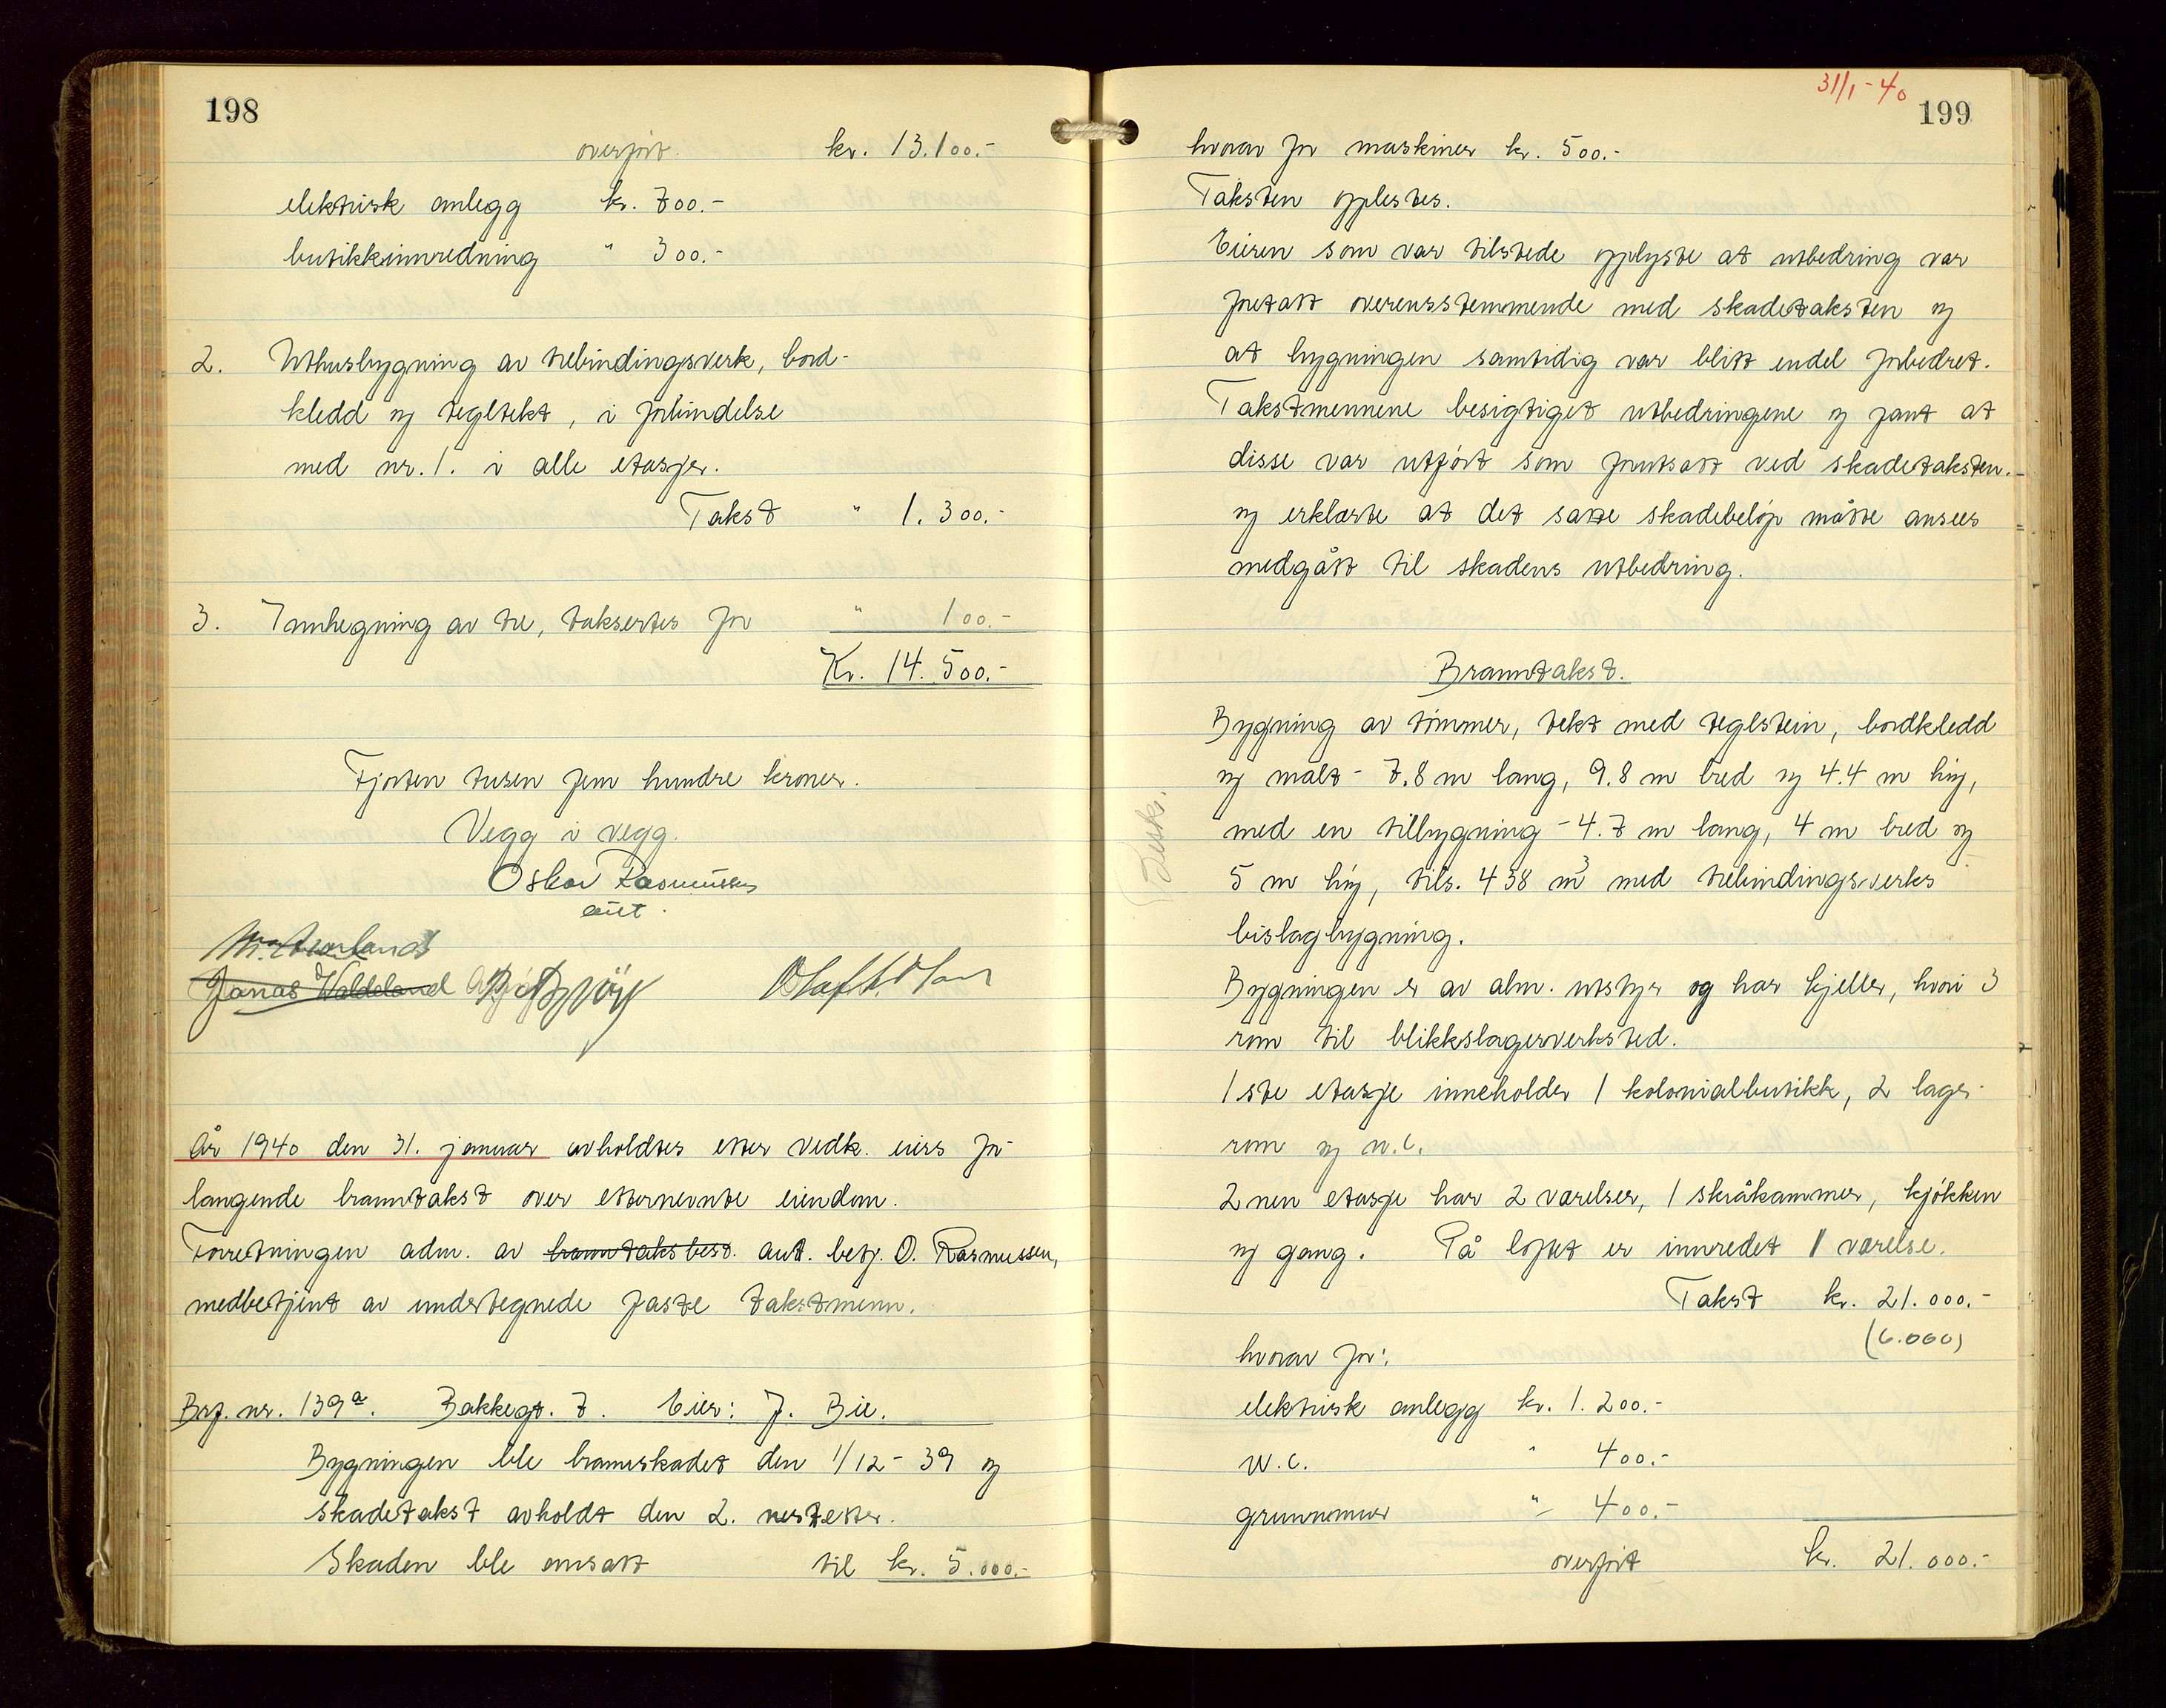 198
overført. kr. 13.100.-
elektrisk anlegg kr. 700.-
butikkinnredning " 300.-
2. Uthusbygning av trebindingsverk, bord-
kledd og tegltekt, i forbindelse
med nr. 1. i alle etasjer.
Takst " 1.300.-
3. Innhegning av tre, taksertes for " 100.-
Kr. 14.500.-
Fjorten tusen fem hundre kroner.
Vegg i vegg.
Oskar Rasmussen
aut.
Jonas Waldeland
År 1940 den 31. januar avholdtes etter vedk. eiers for-
langende branntakst over etternevnte eiendom.
Forretningen adm. av branntaksbest. aut. betj. O. Rasmussen,
medbetjent av undertegnede faste takstmenn.
Brf. nr. 139a. Bakkegt. 7. Eier: J. Bie.
Bygningen ble brannskadet den 1/12-39 og
skadetakst avholdt den 2. nestetter.
Skaden ble ansatt til kr. 5.000.-
31/1-40
199
hvorav for maskiner kr. 500.-
Taksten opplestes.
Eieren som var tilstede opplyste at utbedring var
foretatt overensstemmende med skadetaksten og
at bygningen samtidig var blitt endel forbedret.
Takstmennene besigtiget utbedringene og fant at
disse var utført som forutsatt ved skadetaksten.-
og erklærte at det satte skadebeløp måtte ansees
medgått til skadens utbedring.
Branntakst.
Bygning av tømmer, tekt med teglstein, bordkledd
og malt - 7.8 m lang, 9.8 m bred og 4.4 m høy,
med en tilbygning - 4.7 m lang, 4 m bred og
5 m høy, tils. 438 m3 med trebindingsverks
bislagbygning.
Bygningen er av alm. utstyr og har kjeller, hvori 3
rom til blikkslagerverksted.
1 ste etasje inneholder 1 kolonialbutikk, 2 lager-
rom og w.c.
2 nen etasje har 2 værelser, 1 skråkammer, kjøkken
og gang. På loftet er innredet 1 værelse.
Takst kr. 21.000.-
(6.000)
hvorav for:
elektrisk anlegg kr. 1.200.-
w.c. " 400.-
grunnmur " 400.-
overført kr. 21.000.-